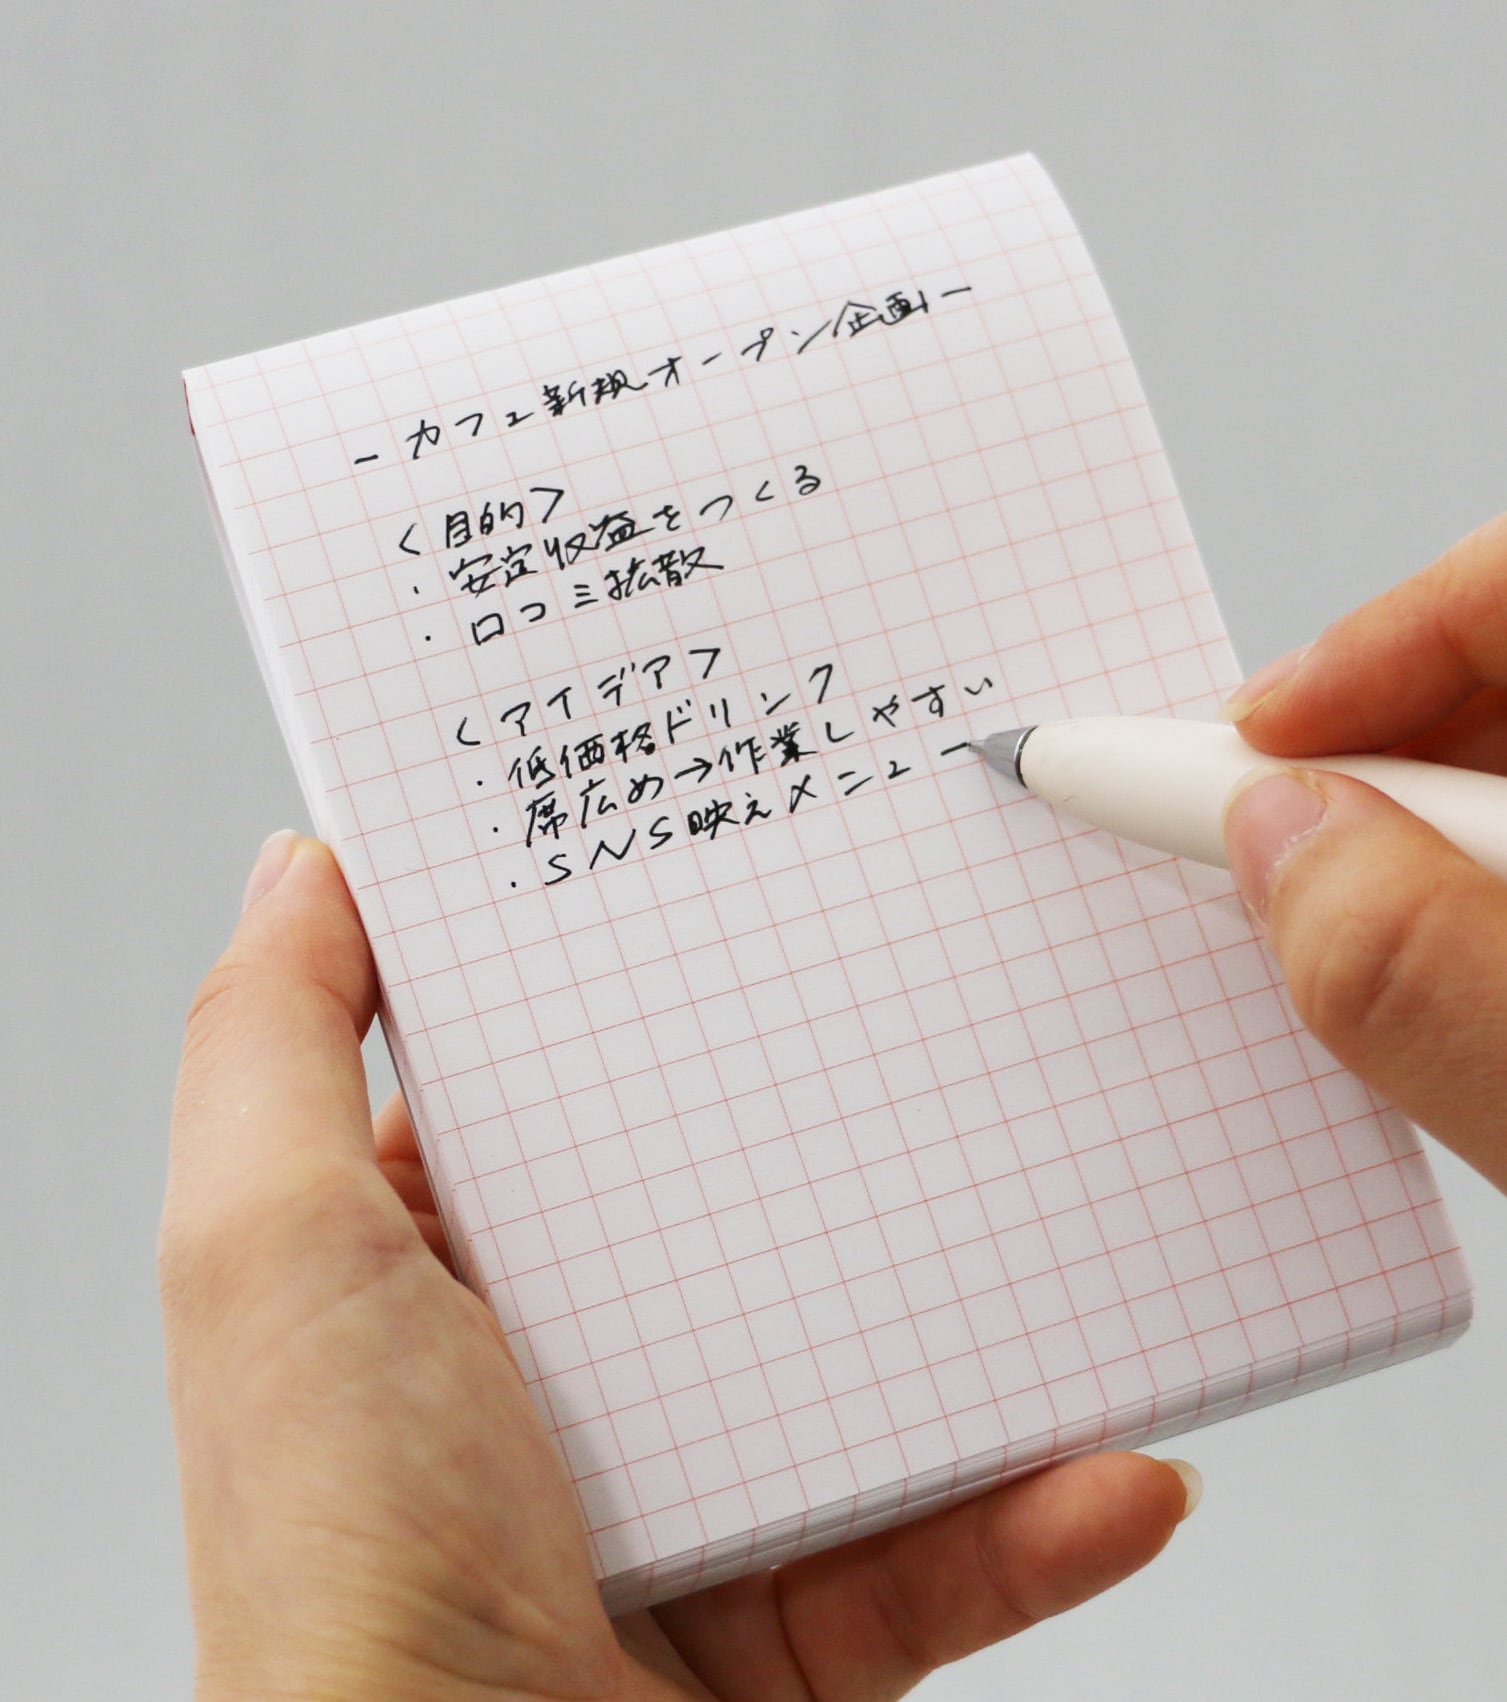 - カフェ新規オープン企画 -
<目的>
・安定収益をつくる
・口コミ拡散
<アイデア>
・低価格ドリンク
・席広め→作業しやすい
・SNS映えメニュー